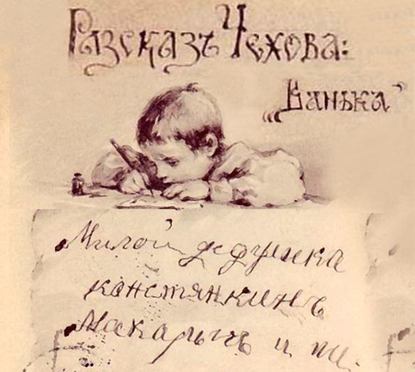 Разсказъ Чехова:
„Ванька”
Милой дедушка
канстянкинъ
Макарычъ и пи.